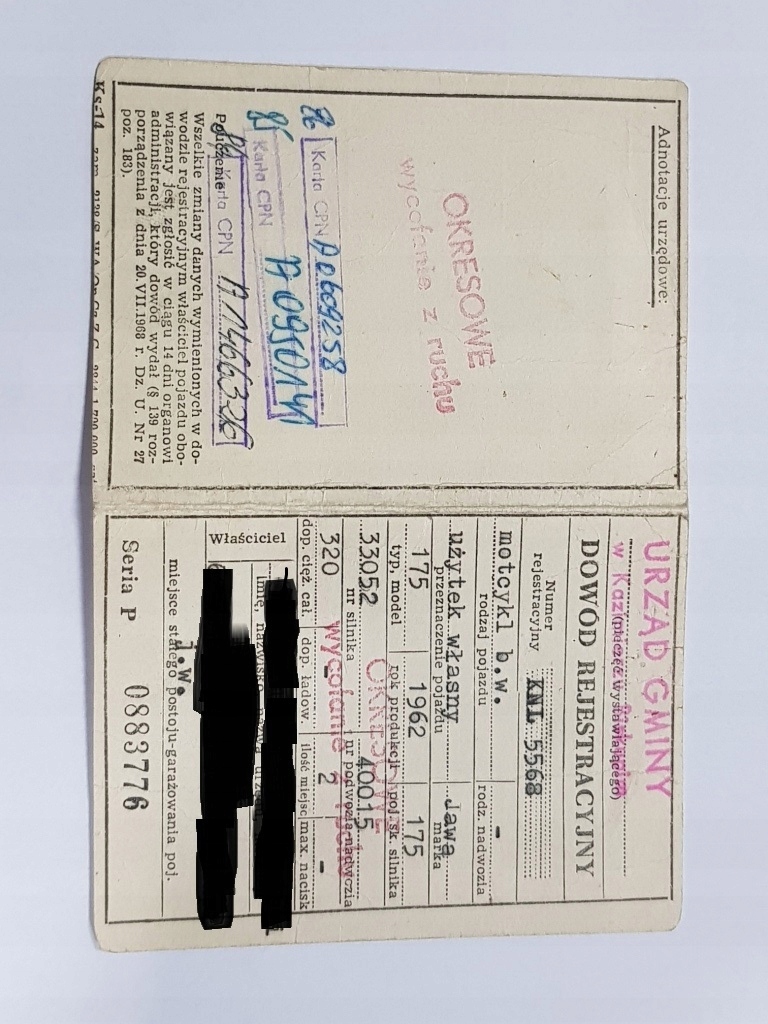 Adnotacje urzędowe:
OKRESOWE
wycofanie z ruchu
86 Karta CPN A0609258
85 Karta CPN A0950141
Karta CPN A1406326
Pouczenie
Wszelkie zmiany danych wymienionych w do-
wodzie rejestracyjnym właściciel pojazdu obo-
wiązany jest zgłosić w ciągu 14 dni organowi
administracji, który dowód wydał (§ 139 roz-
porządzenia z dnia 20.VII.1968 r. Dz. U. Nr 27
poz. 183).
Ks-14
URZĄD GMINY
(pieczęć wystawiającego)
DOWÓD REJESTRACYJNY
Numer
rejestracyjny KNL 5568
motcykl b.w. -
rodzaj pojazdu rodz. nadwozia
użytek własny Jawa
przeznaczenie pojazdu marka
175 1962 175
typ, model rok produkcji poj. sk. silnika
33052 40015
nr silnika nr podwozia-nadwozia
OKRESOWE
wycofanie z ruchu
320 - 2 -
dop. cięż. cał. dop. ładow. ilość miejsc max. nacisk
Właściciel
imię, nazwisko
j.w.
miejsce stałego postoju-garażowania poj.
Seria P 0883776